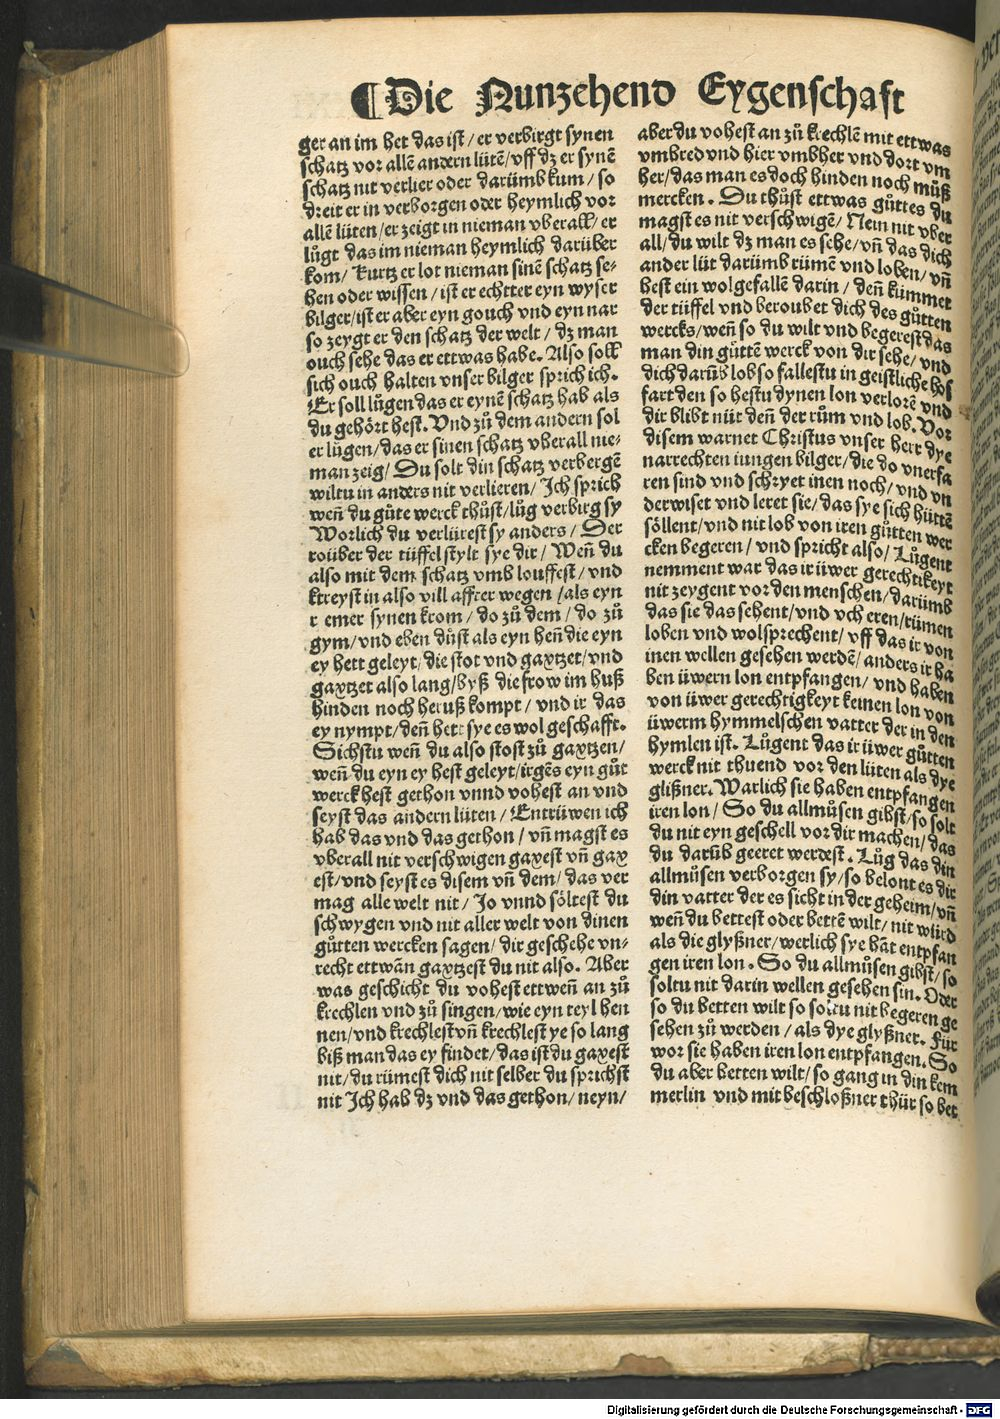 ¶Die Nunzehend Eygenschaft
ger an im het das ist / er verbirgt synen
schatz vor allē andern lütē / vff dz er synē
schatz nit verlier oder darümb kum / so
dreit er in verborgen oder heymlich vor
allē lüten / er zeigt in nieman vberall / er
lůgt das im nieman heymlich darüber
kom / kurtz er lot nieman sinē schatz se⸗
hen oder wissen / ist er echtter eyn wyser
bilger / ist er aber eyn gouch vnd eyn nar
so zeygt er den schatz der welt / dz man
ouch sehe das er ettwas habe. Also soll
sich ouch halten vnser bilger sprich ich.
Er soll lůgen das er eynē schatz hab als
du gehört hest. Vnd zů dem andern sol
er lůgen / das er sinen schatz vberall nie⸗
man zeig / Du solt din schatz verbergē
wiltu in anders nit verlieren / Ich sprich
wen̄ du gůte werck thůst / lůg verbirg sy
Worlich du verlürest sy anders / Der
roüber der tüffel stylt sye dir / Wen̄ du
also mit dem schatz vmb louffest / vnd
ktreyst in also vill affter wegen / als eyn
r emer synen krom / do zů dem / do zů
gym / vnd eben düst als eyn hen̄ die eyn
ey hett geleyt / die stot vnd gaxtzet / vnd
gaxtzet also lang / byß die frow im huß
hinden noch heruß kompt / vnd ir das
ey nympt / den̄ hett sye es wol geschafft.
Sichstu wen̄ du also stost zů gaxtzen /
wen̄ du eyn ey hest geleyt / irgēs eyn gůt
werck hest gethon vnnd vohest an vnd
seyst das andern lüten / Entrüwen ich
hab das vnd das gethon / vn̄ magst es
vberall nit verschwigen gaxest vn̄ gax
est / vnd seyst es disem vn̄ dem / das ver
mag alle welt nit / Jo vnnd söltest du
schwygen vnd nit aller welt von dinen
gůtten wercken sagen / dir geschehe vn⸗
recht ettwān gaxtzest du nit also. Aber
was geschicht du vohest ettwen̄ an zů
krechlen vnd zů singen / wie eyn teyl hen
nen / vnd krechlest vn̄ krechlest ye so lang
biß man das ey findet / das ist du gaxest
nit / du rümest dich nit selber du sprichst
nit Ich hab dz vnd das gethon / neyn /
aber du vohest an zů krechlē mit ettwas
vmbred vnd hier vmbher vnd dort vm
her / das man es doch hinden noch můß
mercken. Du thůst ettwas gůttes du
magst es nit verschwigē / Nein nit vber
all / du wilt dz man es sehe / vn̄ das dich
ander lüt darümb rümē vnd loben / vn̄
hest ein wolgefallē darin / den̄ kümmet
der tüffel vnd beroubet dich des gůtten
wercks / wen̄ so du wilt vnd begerest das
man din gůttē werck von dir sehe / vnd
dich darūb lob so fallestu in geistliche hof
fart den so hestu dynen lon verlorē vnd
dir blibt nüt den̄ der rům vnd lob. Vor
disem warnet Christus vnser herr dye
narrechten iungen bilger / die do vnerfa
ren sind vnd schryet inen noch / vnd vn
derwiset vnd leret sie / das sye sich hüttē
söllent / vnd nit lob von iren gůtten wer
cken begeren / vnd spricht also / Lůgent
nemment war das ir üwer gerechtikeyt
nit zeygent vor den menschen / darümb
das sie das sehent / vnd vch eren / rümen
loben vnd wolsprechent / vff das ir von
inen wellen gesehen werdē / anders ir ha
ben üwern lon entpfangen / vnd haben
von üwer gerechtigkeyt keinen lon von
üwerm hymmelschen vatter der in den
hymlen ist. Lůgent das ir üwer gůtten
werck nit thuend vor den lüten als dye
glißner. Warlich sie haben entpfangen
iren lon / So du allmůsen gibst / so solt
du nit eyn geschell vor dir machen / das
du darūb geeret werdest. Lůg das din
allmůsen verborgen sy / so belont es dir
din vatter der es sicht in der geheim / vn̄
wen̄ du bettest oder bettē wilt / nit würd
als die glyßner / werlich sye hāt entpfan
gen iren lon. So du allmůsen gibst / so
soltu nit darin wellen gesehen sin. Oder
so du betten wilt so soltu nit begeren ge
sehen zů werden / als dye glyßner. Für
wor sie haben iren lon entpfangen. So
du aber betten wilt / so gang in din kem
merlin vnd mit beschloßner thür so bet
Digitalisierung gefördert durch die Deutsche Forschungsgemeinschaft - DFG